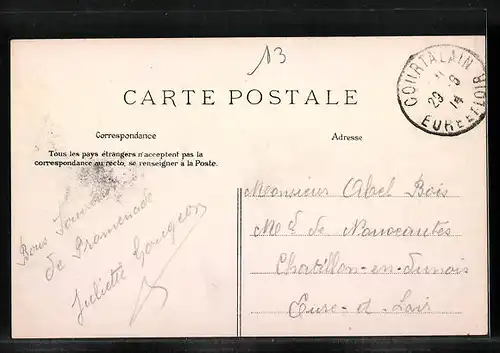 13
COURTALAIN
11 - 9
29 14
EURE ET LOIR
CARTE POSTALE
Correspondance
Adresse
Tous les pays étrangers n'acceptent pas la
correspondance au recto, se renseigner à la Poste.
Bons Souvenirs
de Promenade
Juliette
Monsieur Abel Bois
Md de Nouveautés
Chatillon-en-Dunois
Eure-et-Loir